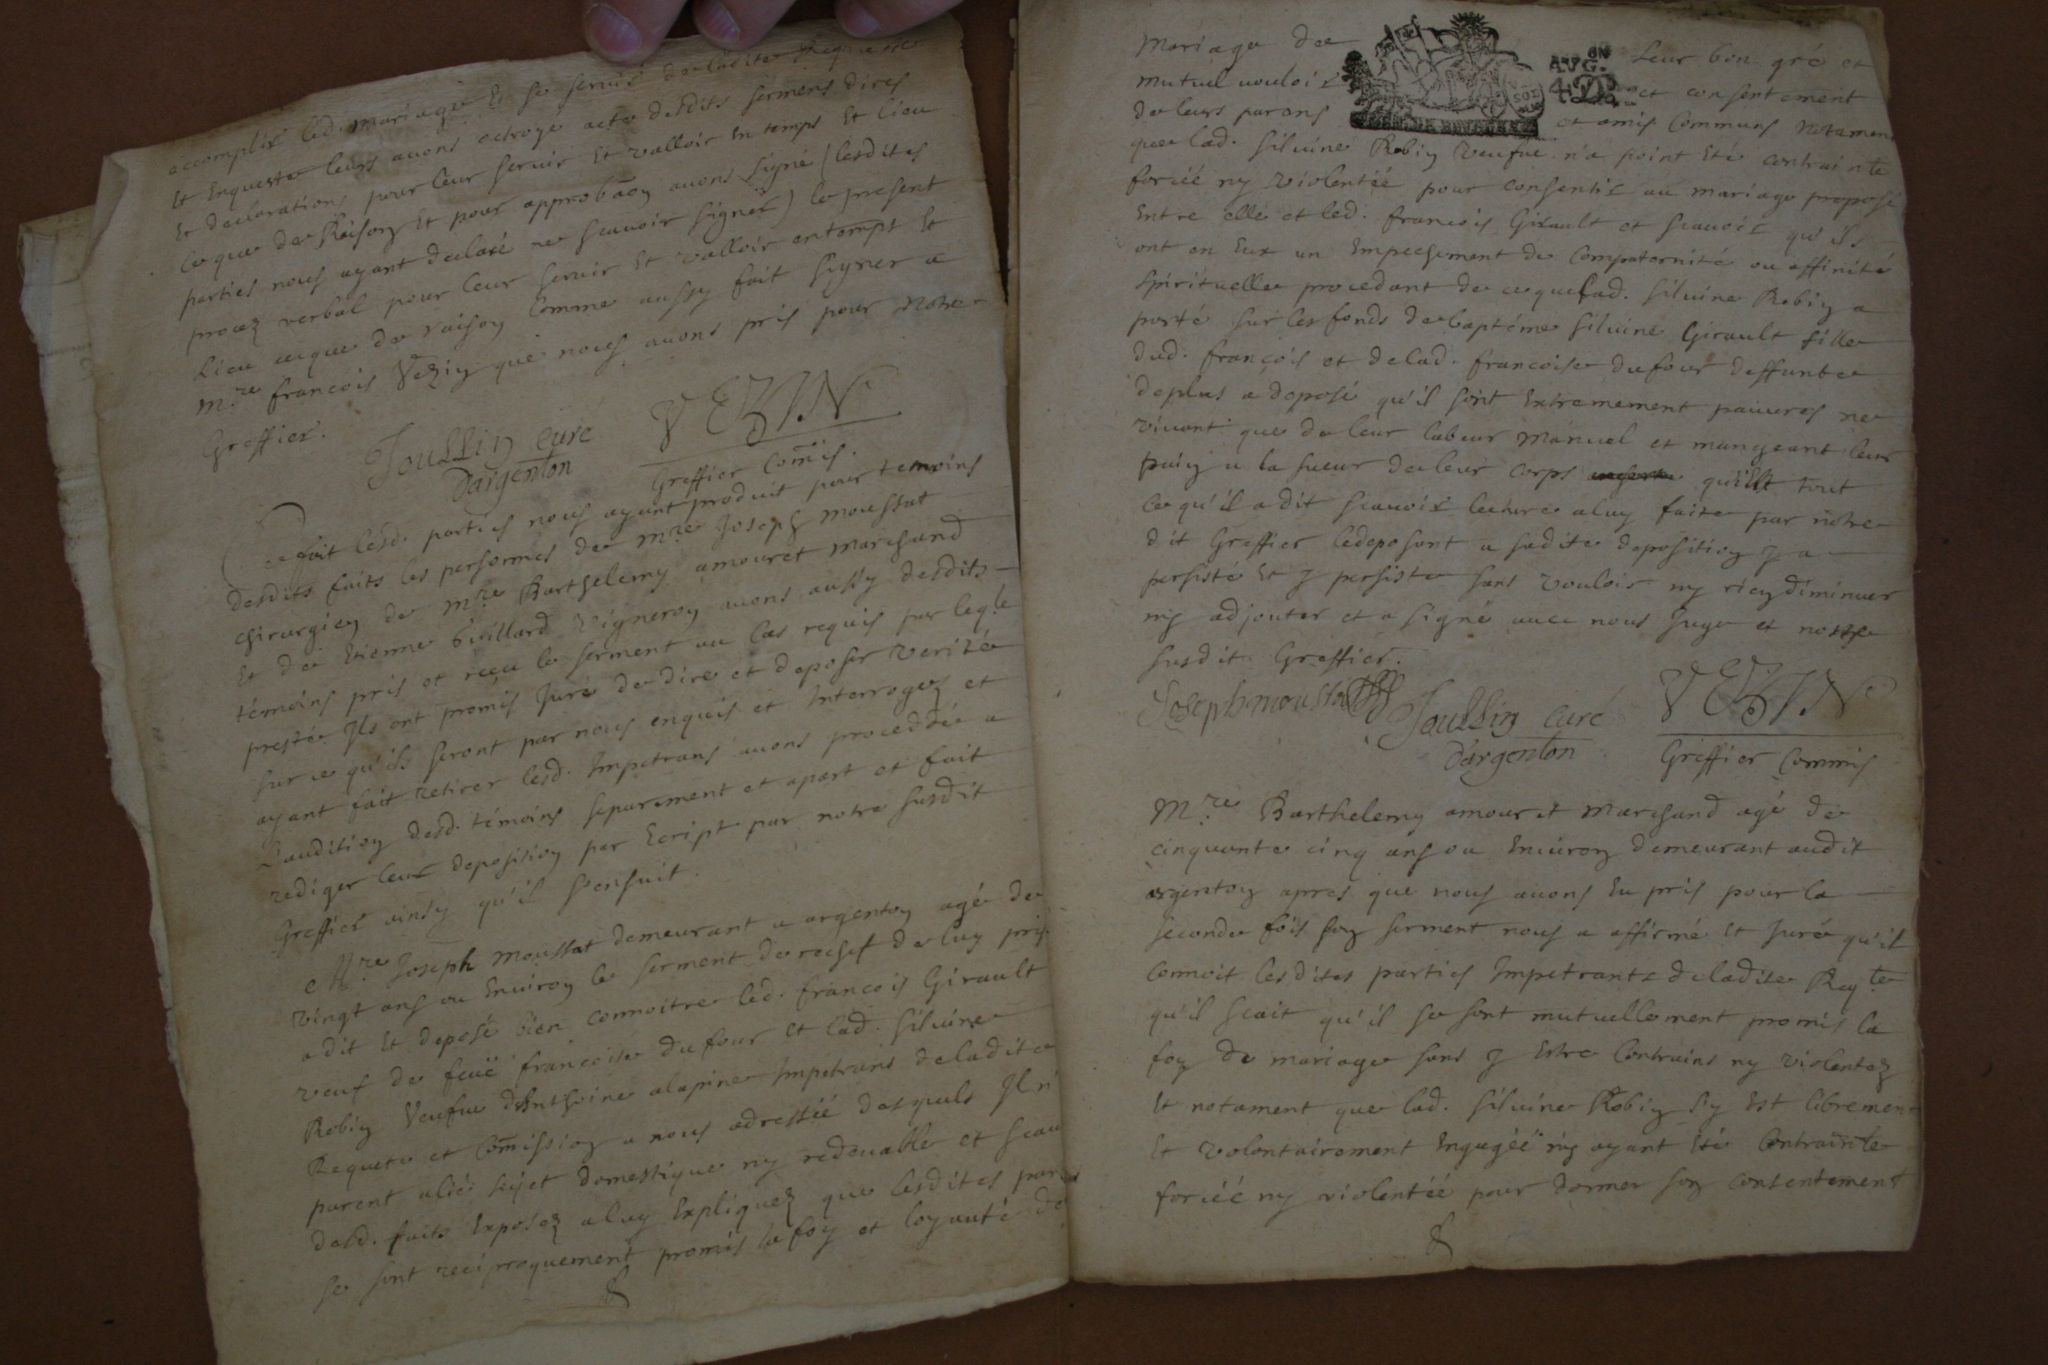 accomplir led. mariage Et se servir de ladite Requeste
Et Enqueste leurs avons octroyé acte desdits sermens dires
Et declarations pour leur servir Et valloir En temps Et Lieu
ce que de Raison Et pour approbaon avons signé (lesdites
parties nous ayant declaré ne scavoir signer) le present
procez verbal pour leur servir Et valloir entempt Et
Lieu ceque de raison Comme aussy fait signer a
Mre francois Vezin que nous avons pris pour notre
Greffier.
Joullin curé
d'argenton
VEZIN
Greffier Commis.
Ce fait lesd. parties nous ayant produit pour temoins
desdits faits les personnes de Mre Joseph moussat
chirurgien de Mre Barthelemy amouret marchand
Et de Etienne vigneron avons aussy desdits
témoins pris et reçu le serment au cas requis par leqle
presté Ils ont promis Juré de dire et deposer verité
sur ce qu'ils seront par nous enquis et Interrogez et
ayant fait retirer lesd. Impetrans avons proceddé a
L'audition desd. témoins separement et apart et fait
rediger leur deposition par Ecript par notre susdit
Greffier ainsy qu'il s'ensuit.
Mre Joseph Moussat demeurant a argenton agé de
vingt ans ou Environ le serment derechef de luy pris
a dit Et deposé bien connoitre led. francois Girault
veuf de feuë francoise dufour Et lad. silvine
Robin Veufve d'Anthoine alapine Impetrans deladite
Requete et Comission a nous adressée desquels Il n'
parent alié sujet domestique ny redevable et scau
desd. faits Exposez a luy Expliquez que lesdites par
se sont reciproquement promis la foy et loyauté de
Mariage de leur bon gré et
AVG.ON
4 D.
SOL
mutuel vouloir et consentement
de leurs parens et amis Communs Notamen
que lad. silvine Robin veufve n'a point Eté contrainte
forcéé ny violentéé pour consentir au mariage proposé
Entre elle et led. francois Girault et scavoir qu'ils
ont en Eux un Empechement de Compaternité ou affinité
spirituelle procedant de ceque lad. silvine Robin a
porté sur les fonds de baptéme silvine Girault fille
dud. françois et delad. francoise dufour deffunte
deplus a deposé qu'il sont Extremement pauvres ne
vivant que de leur labeur Manuel et mangeant leur
pain a la sueur de leur corps qui Est tout
ce qu'il a dit scavoir lecture aluy faite par nôtre
dit Greffier ledeposant a sadite deposition y a
persisté Et y persiste sans vouloir ny rien diminuer
ny adjouter et a signé avec nous Juge et nostre
susdit Greffier.
Joseph moussat
Joullin curé
d'argenton
VEZIN
Greffier Commis
Mre Barthelemy amouret Marchand agé de
cinquante cinq ans ou Environ demeurant audit
argenton apres que nous avons Eu pris pour la
seconde fois son serment nous a affirmé Et Juré qu'il
connoit lesdites parties Impetrants deladite Reqte
qu'il scait qu'il se sont mutuellement promis la
foy de mariage sans y Estre Contrains ny violentez
Et notament que lad. silvine Robin s'y Est libremen
Et volontairement Engagéé n'y ayant Eté Contrainte
forcéé ny violentéé pour donner son consentement